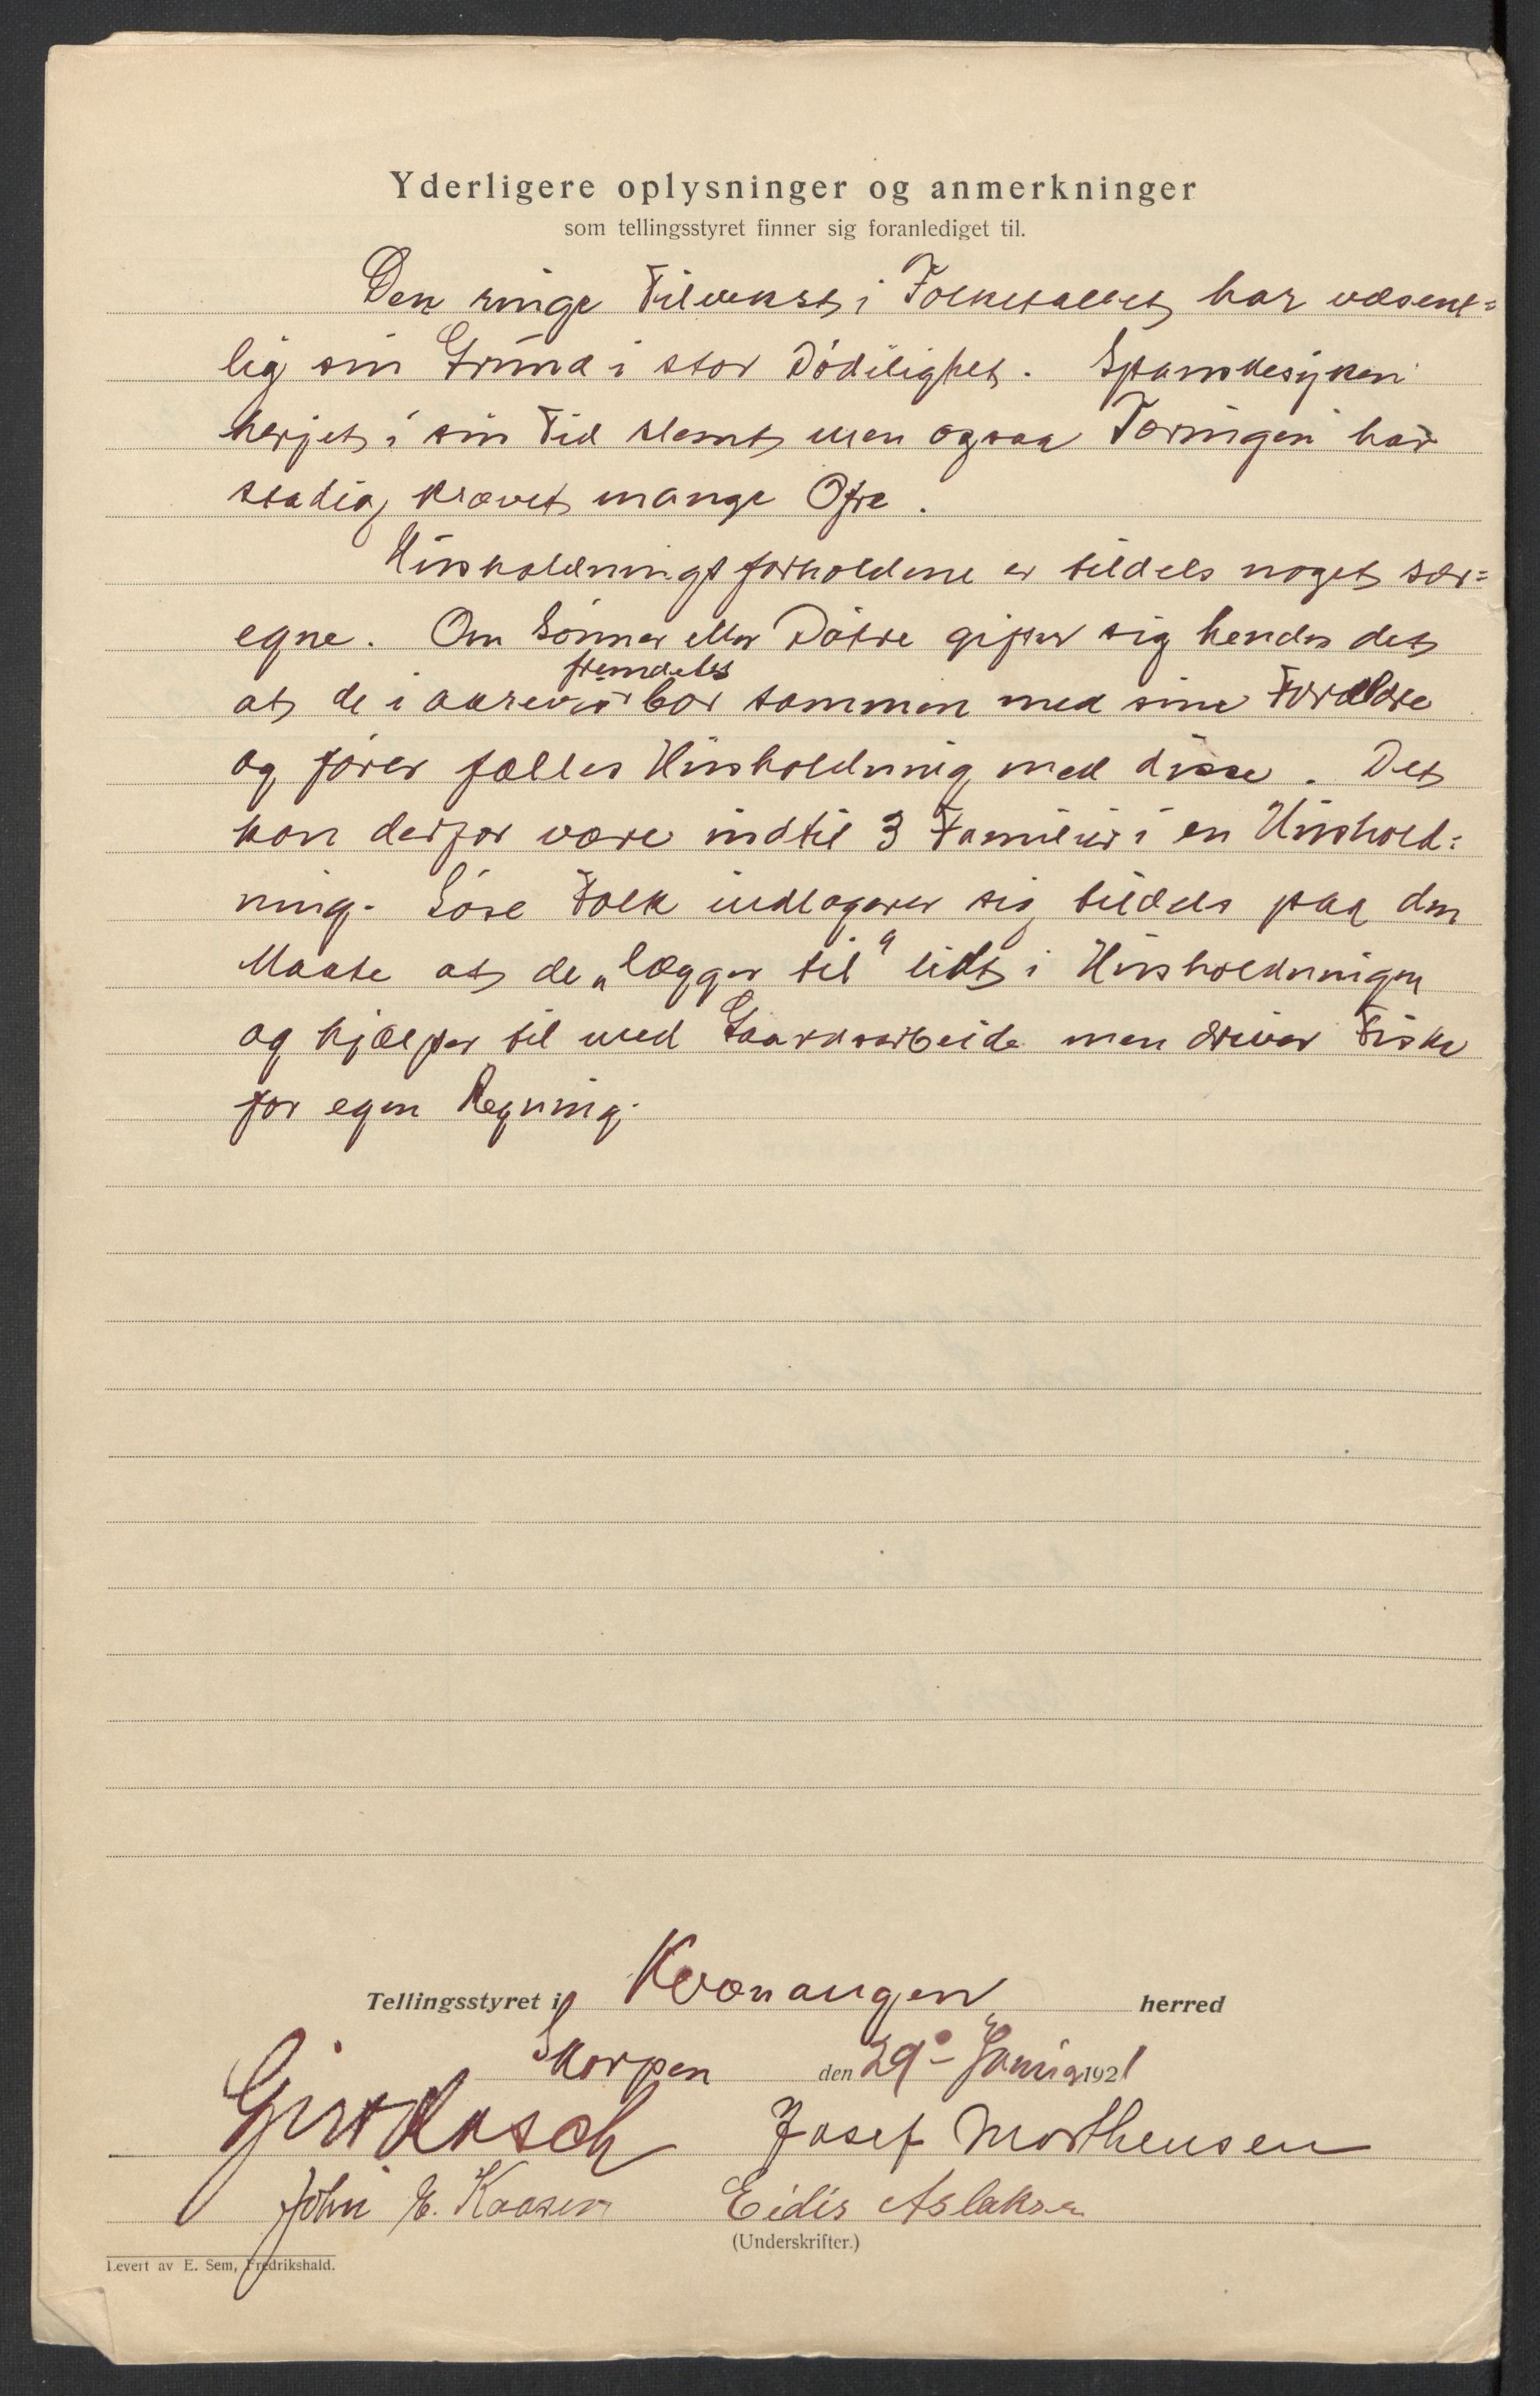 Yderligere oplysninger og anmerkninger
som tellingsstyret finner sig foranlediget til.
Den ringe Tilvekst i Folketallet har væsent=
lig sin Grund i stor Dödelighet. Spanskesyken
herjet i sin Tid slemt men ogsaa Tæringen har
stadig krævet mange Ofre.
Husholdningsforholdene er tildels noget sær=
egne. Om Sönner eller Dötre gifter sig hender det
fremdeles
at de i aarevis bor sammen med sine Forældre
og förer fælles Husholdning med disse. Det
kan derfor være indtil 3 Familier i en Hushold=
ning. Löse Folk indlogerer sig tildels paa den
Maate at de „lægger til" lidt i Husholdningen
og hjælper til med Gaardsarbeide men driver Fiske
for egen Regning.
Tellingsstyret i Kvænangen herred
Skorpen den 29 Januar 1921
Josef Morthensen
John E. Kaasen Eidis Aslaksen
(Underskrifter.)
Levert av E. Sem, Fredrikshald.